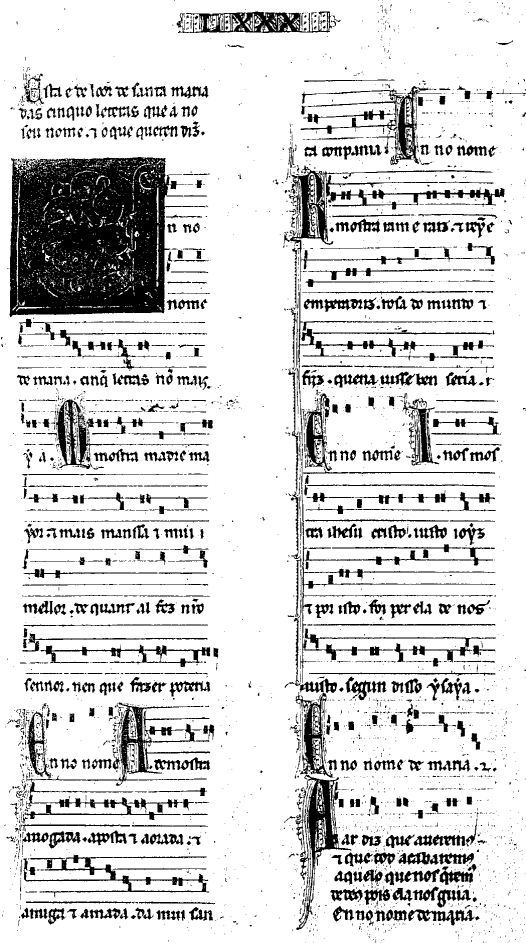 LXXX
Esta e de loor de santa maria
das cinquo leteras que á no
seu nome. ⁊ o que queren diz̃.
En no
nome
de maria. cinq̃ letras nõ mais
y á. M mostra madre ma
yor. ⁊ mais manssa ⁊ mui
mellor. de quant al fez nr̃o
sennor. nen que fazer poderia
En no nome A demostra
auogada. aposta ⁊ aorada. ⁊
amiga ⁊ amada. da mui san
ta conpania. En no nome
R. mostra ram e raiz. ⁊ reỹe
emperadriz. rosa do mundo ⁊
fijz. quena uisse ben seria.
En no nome I. nos mos
tra ihesu cristo. iusto ioyz
⁊ por isto. foi per ela de nos
uisto. segun disso ysaya.
En no nome de maria. ⁊.
A ar diz que aueremos
⁊ que tod acabaremos
aquelo que nos q̃remos
de deus pois ela nos guia.
En no nome de maria.